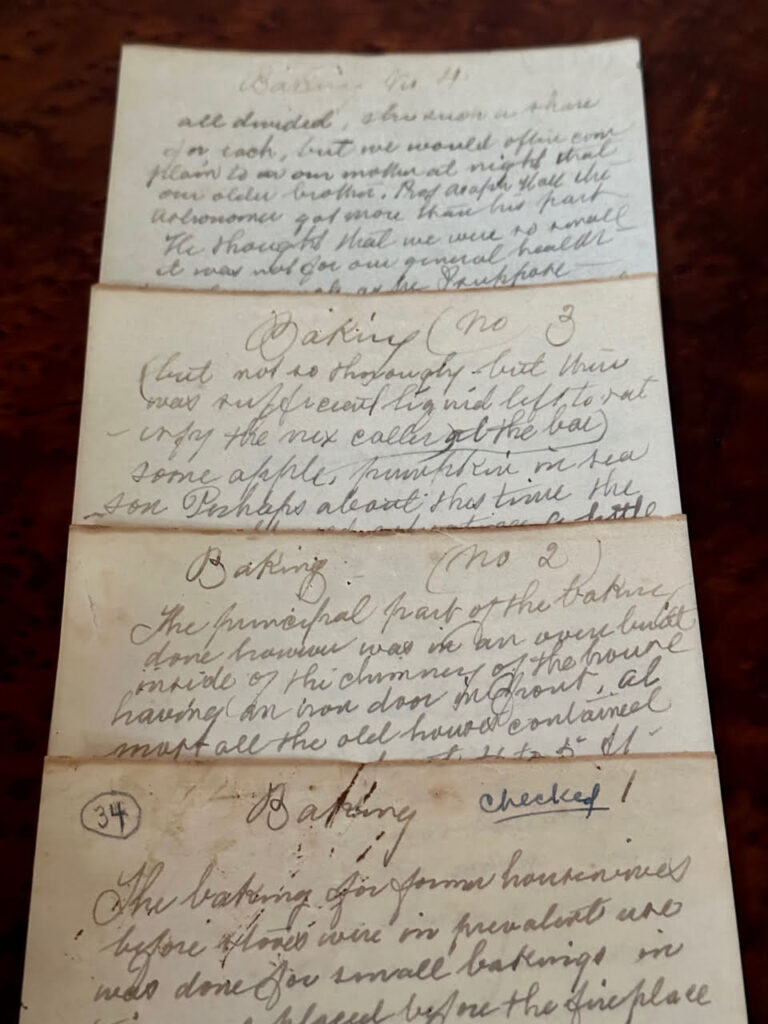 Baking No 4
all divided, a share
for each, but we would often com
plain to our mother at night that
our older brother, Prof Asaph Hall the
Astronomer got more than his part
He thought that we were so small
it was not for our general health
as he I suppose
Baking (No 3
(but not so thorougly but there
was sufficient liquid left to sat
- isfy the nex caller at the bar)
some apple, pumpkin in sea
son Perhaps about this time the
a little
Baking (No 2)
The principal part of the baking
done however was in an oven built
inside of the chimney of the house
having an iron door in front, al
most all the old houses contained
4 to 5 ft
34 Baking checked 1
The baking for former housewives
before stoves were in prevalent use
was done for small bakings in
placed before the fireplace